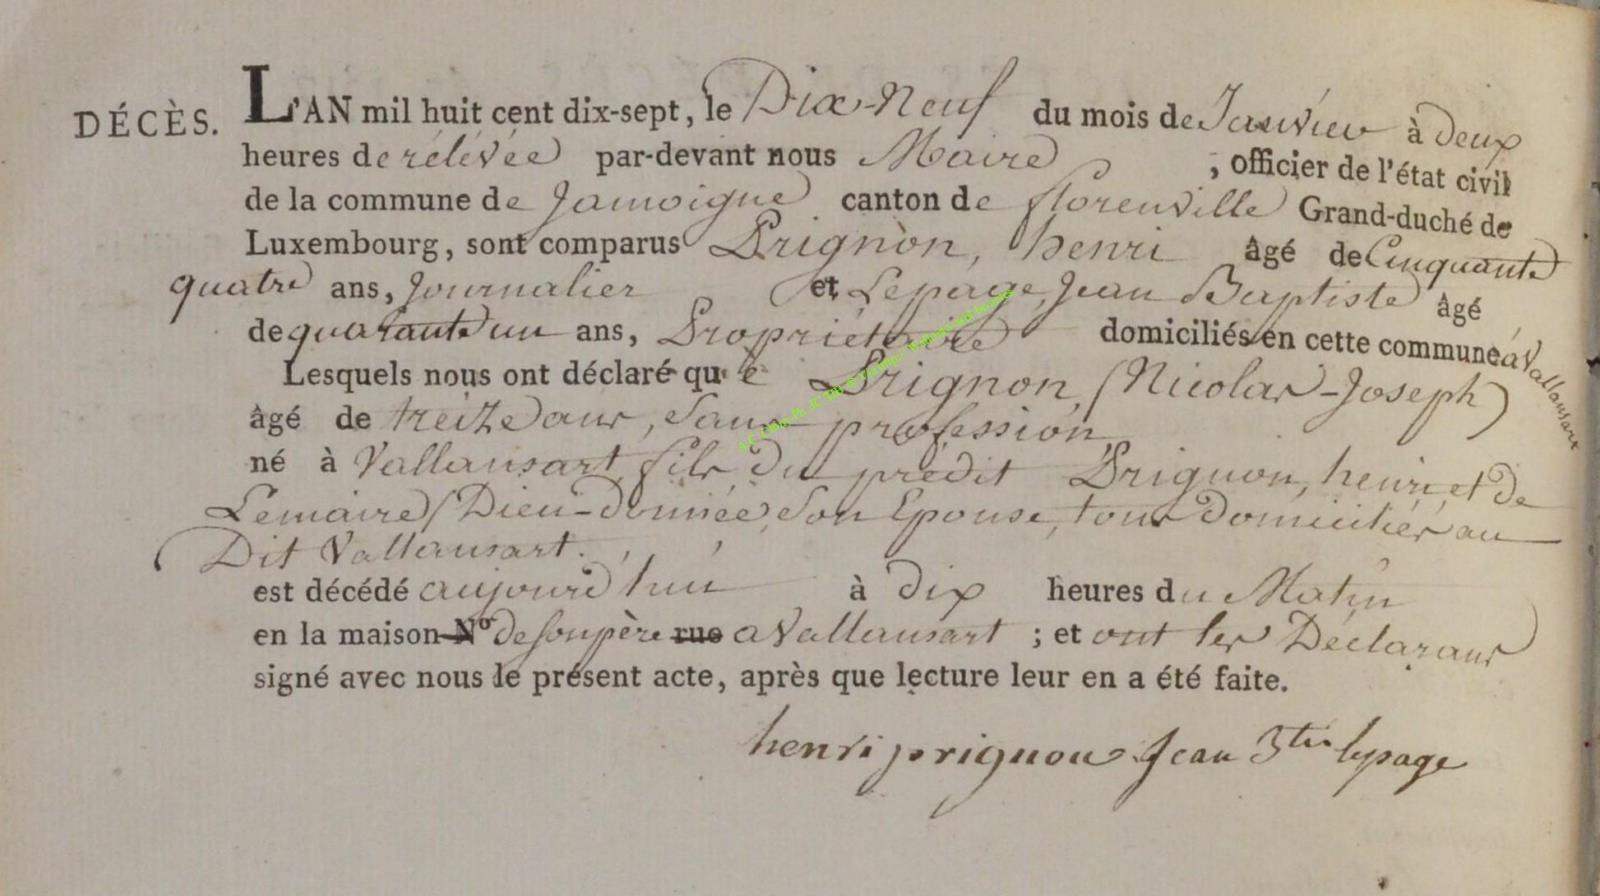 DÉCÈS. L'AN mil huit cent dix-sept, le Dix-Neuf du mois de Janvier à deux
heures de rélévée par-devant nous Maire , officier de l'état civil
de la commune de Jamoigne canton de florenville Grand-duché de
Luxembourg, sont comparus Prignon, henri âgé de Cinquante
quatre ans, Journalier et Lepage, Jean Baptiste âgé
de quarante un ans, Propriétaire domiciliés en cette commune à Vallansart
Lesquels nous ont déclaré que Prignon (Nicolas-Joseph)
âgé de treize ans, sans profession
né à Vallansart, fils du prédit Prignon, henri, et de
Lemaire (Dieu-donnée, son Epouse, tous domiciliés au
Dit Vallansart.
est décédé aujourd'hui à dix heures du Matin
en la maison N° de son père rue a Vallansart ; et ont les Déclarans
signé avec nous le présent acte, après que lecture leur en a été faite.
henri prignon Jean Bte lepage